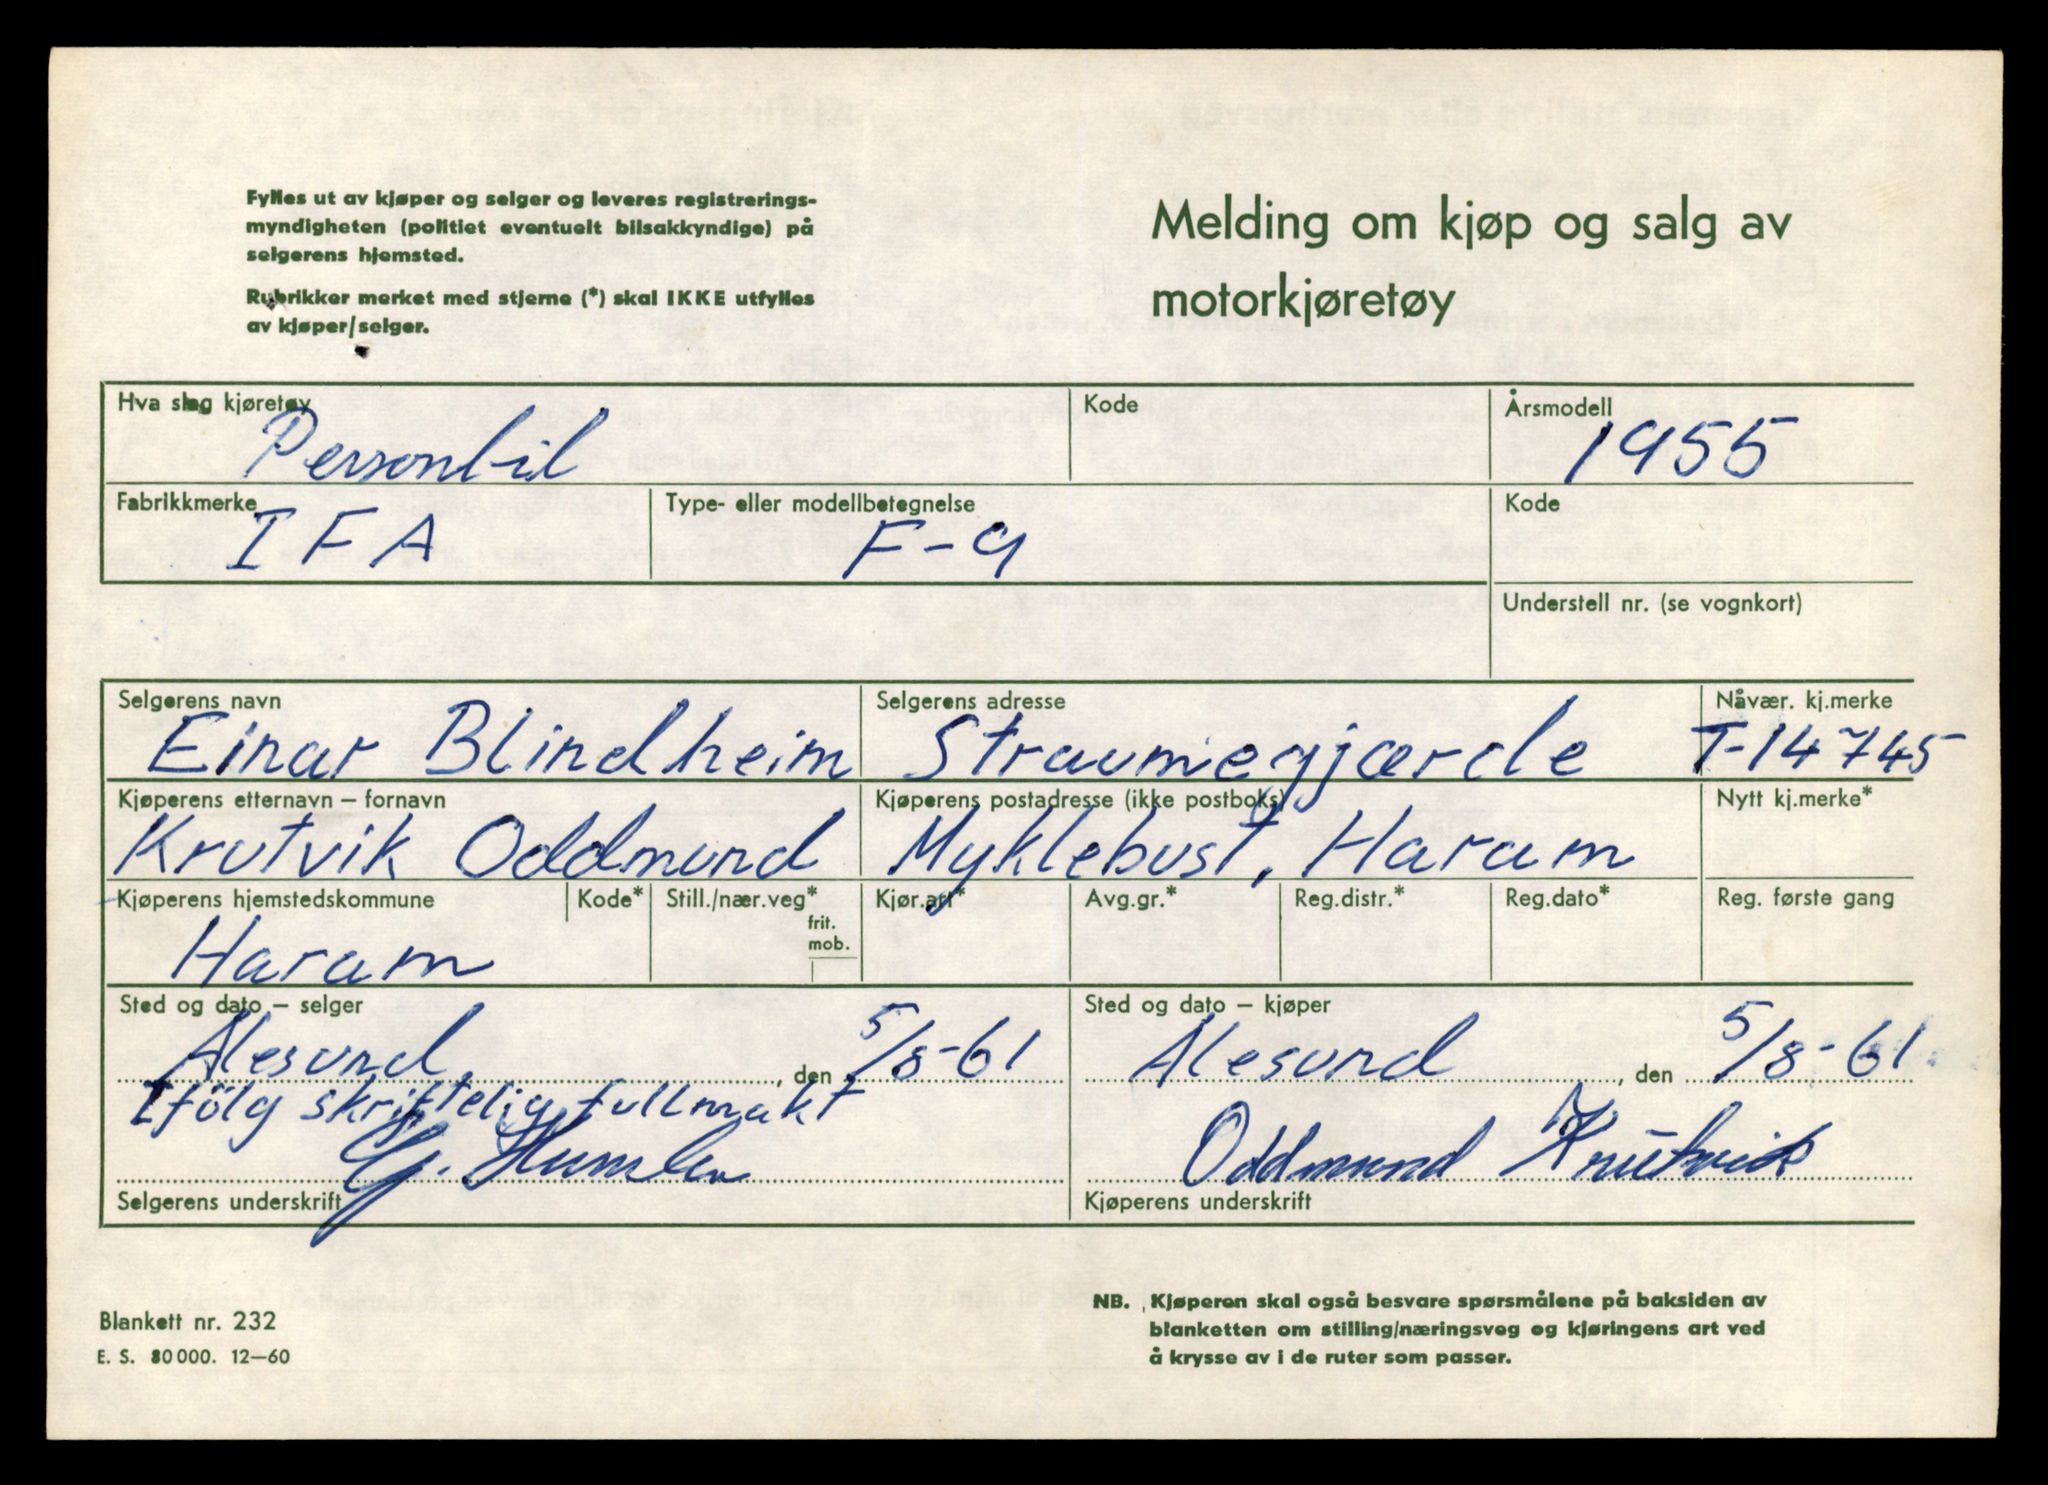 Fylles ut av kjøper og selger og leveres registrerings-
myndigheten (politiet eventuelt bilsakkyndige) på
selgerens hjemsted.
Rubrikker merket med stjerne (*) skal IKKE utfylles
av kjøper/selger.
Melding om kjøp og salg av
motorkjøretøy
Hva slag kjøretøy
Personbil
Kode
Årsmodell
1955
Fabrikkmerke
IFA
Type- eller modellbetegnelse
F-9
Kode
Understell nr. (se vognkort)
Selgerens navn
Einar Blindheim
Selgerens adresse
Straumegjærde
Nåvær. kj.merke
T-14745
Kjøperens etternavn – fornavn
Krutvik Oddmund
Kjøperens postadresse (ikke postboks)
Myklebust, Haram
Nytt kj.merke*
Kjøperens hjemstedskommune
Haram
Kode*
Still./nær.veg*
frit.
mob.
Kjør.art*
Avg.gr.*
Reg.distr.*
Reg.dato*
Reg. første gang
Sted og dato – selger
Alesund, den 5/8-61
Ifölg skriftelig fullmakt
Selgerens underskrift
Sted og dato – kjøper
Alesund, den 5/8-61
Oddmund Knutvik
Kjøperens underskrift
Blankett nr. 232
E. S. 80 000. 12—60
NB. Kjøperen skal også besvare spørsmålene på baksiden av
blanketten om stilling/næringsveg og kjøringens art ved
å krysse av i de ruter som passer.